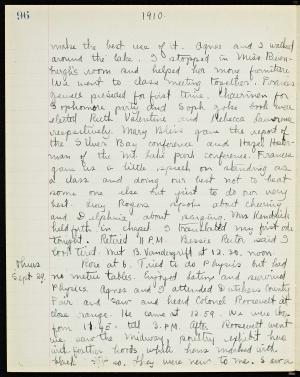 96
1910.
make the best use of it. Agnes and I walked
around the lake. I stopped in Miss
room and helped her move furniture
We went to class meeting together. Frances
presided for first time. Chairmen for
Sophomore party and Soph joke book were
elected Ruth Valentine and Rebecca Lawrence
respectively. Mary Bliss gave the report of
the Silver Bay conference and Hazel
man of the Mt. Lake park conference. Frances
gave us a little speech on standing as
a class and doing our best not to beat
some one else but just to do our very
best. Lucy Rogers spoke about cheering
and Delphine about singing. Mrs Kendrick
held forth in chapel. I translated my first ode
tonight. Retired 11 P.M. Bessie said I
Met B. Vandegrift at 12.30, noon.
Thurs.
Sept. 29.
Rose at 6. Tried to do Physics but had
no metric tables. Enjoyed Latin and survived
Physics. Agnes and I attended Dutchess County
Fair and saw and heard Colonel Roosevelt at
close range. He came at 12.59. We were
from 11.45 till 3 P.M. After Roosevelt went
we saw the Midway, poultry exhibit here
were feather hoods which hens matched with
black so they were new to me. I saw a